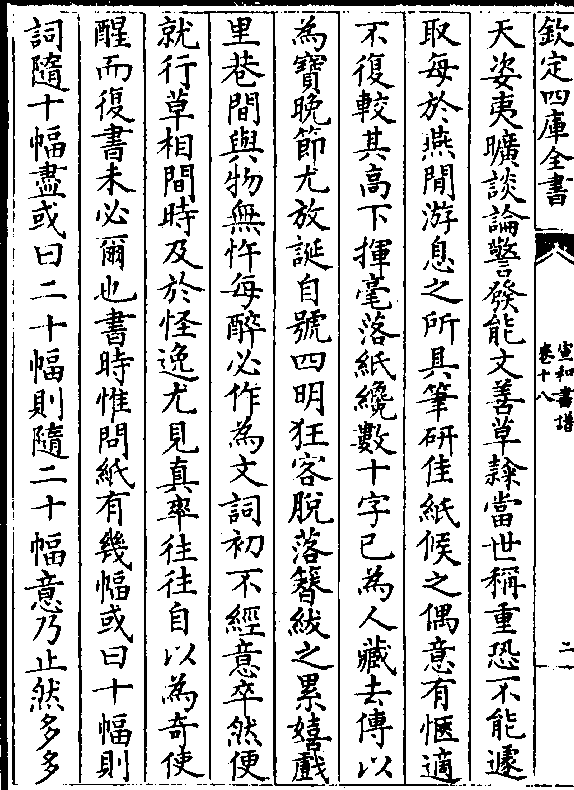 欽定四庫全書
宣和書譜
卷十八
二
天姿夷曠談論警發能文善草隸當世稱重恐不能遽
取每於燕閒游息之所具筆研佳紙候之偶意有愜適
不復較其高下揮毫落紙纔數十字已為人藏去傳以
為寶晚節尤放誕自號四明狂客脫落簪紱之累嬉戲
里巷間與物無忤每醉必作為文詞初不經意卒然便
就行草相間時及於怪逸尤見真率往往自以為奇使
醒而復書未必爾也書時惟問紙有幾幅或曰十幅則
詞隨十幅盡或曰二十幅則隨二十幅意乃止然多多